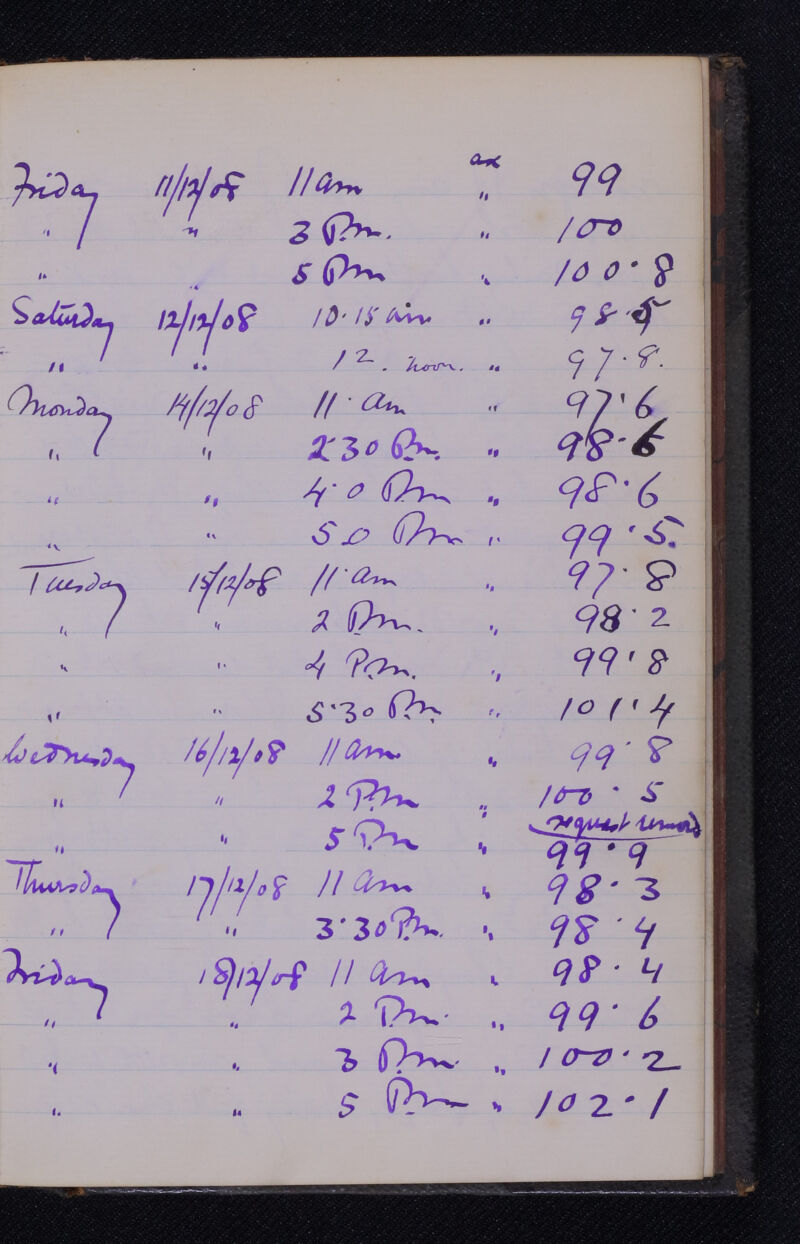 Friday 11/12/08 11 am " 99
" " 3 P.m. " 100
" " 5 Pm " 100.8
Saturday 12/12/08 10.15 am " 98.5
" " 12. noon. " 97.8.
Monday 14/12/08 11. am " 97.6
" " 2.30 P.m. " 98.6
" " 4.0 Pm " 98.6
" " 5.0 Pm " 99.5.
Tuesday 15/12/08 11. am " 97.8
" " 2 P.m. " 98.2
" " 4 P.m. " 99.8
" " 5.30 P.m. " 101.4
Wednesday 16/12/08 11 am " 99.8
" " 2 P.m " 100.5
request
" " 5 P.m " 99.9
Thursday 17/12/08 11 am " 98.3
" " 3.30 P.m. " 98.4
Friday 18/12/08 11 am " 98.4
" " 2 P.m. " 99.6
" " 3 P.m. " 100.2
" " 5 P.m " 102.1